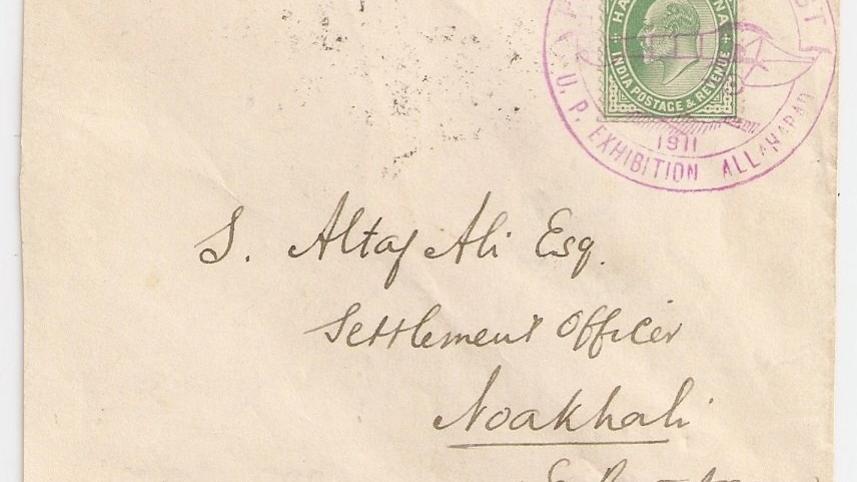 HA NA
INDIA POSTAGE & REVENUE
1911
U. P. EXHIBITION ALLAHABAD
S. Altaf Ali Esq.
Settlement Officer
Noakhali